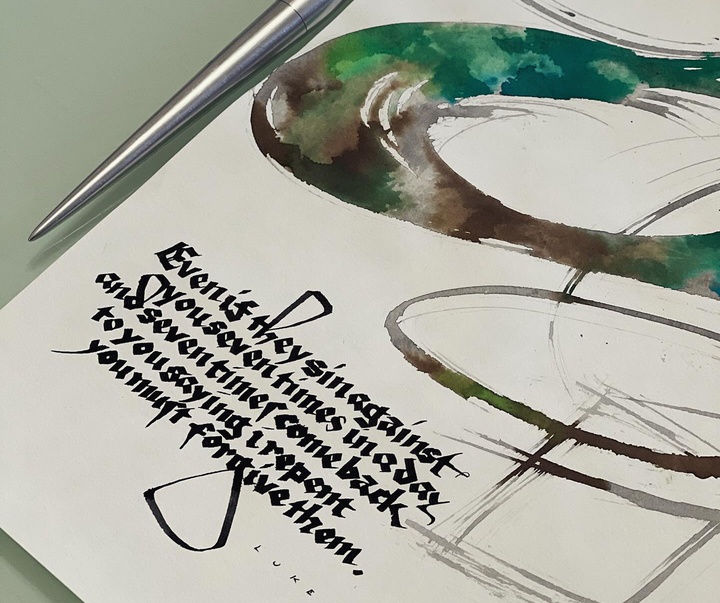 Even if they sin against
you seven times in a day
and seven times come back
to you saying I repent
you must forgive them.
LUKE